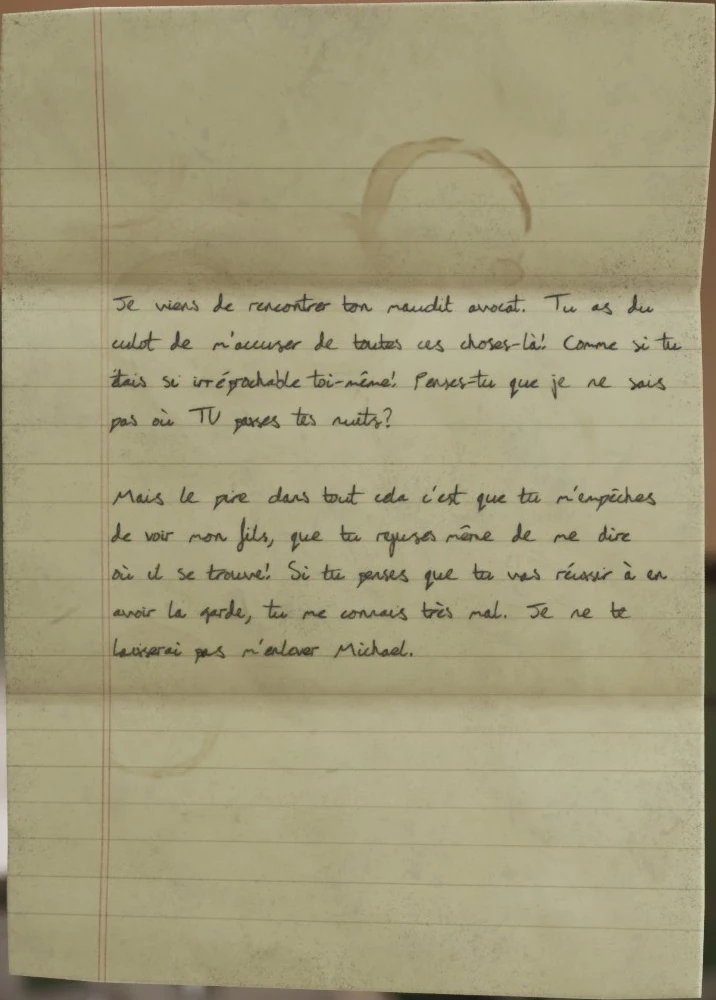 Je viens de rencontrer ton maudit avocat. Tu as du
culot de m'accuser de toutes ces choses-là! Comme si tu
étais si irréprochable toi-même! Penses-tu que je ne sais
pas où TU passes tes nuits?
Mais le pire dans tout cela c'est que tu m'empêches
de voir mon fils, que tu refuses même de me dire
où il se trouve! Si tu penses que tu vas réussir à en
avoir la garde, tu me connais très mal. Je ne te
laisserai pas m'enlever Michael.